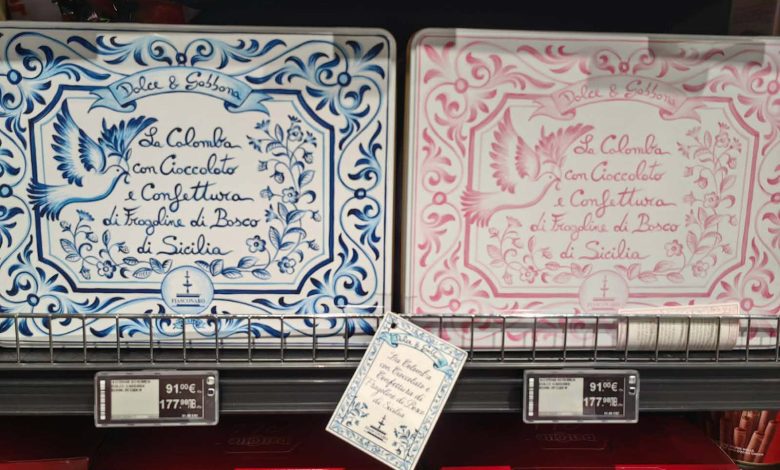 Dolce & Gabbana
La Colomba
con Cioccolato
e Confettura
di Fragoline di Bosco
di Sicilia
FIASCONARO
Dolce & Gabbana
La Colomba
con Cioccolato
e Confettura
di Fragoline di Bosco
di Sicilia
FIASCONARO
Dolce & Gabbana
La Colomba
con Cioccolato e
Confettura di
Fragoline di Bosco
di Sicilia
91.00€
177.98
91.00€
177.98